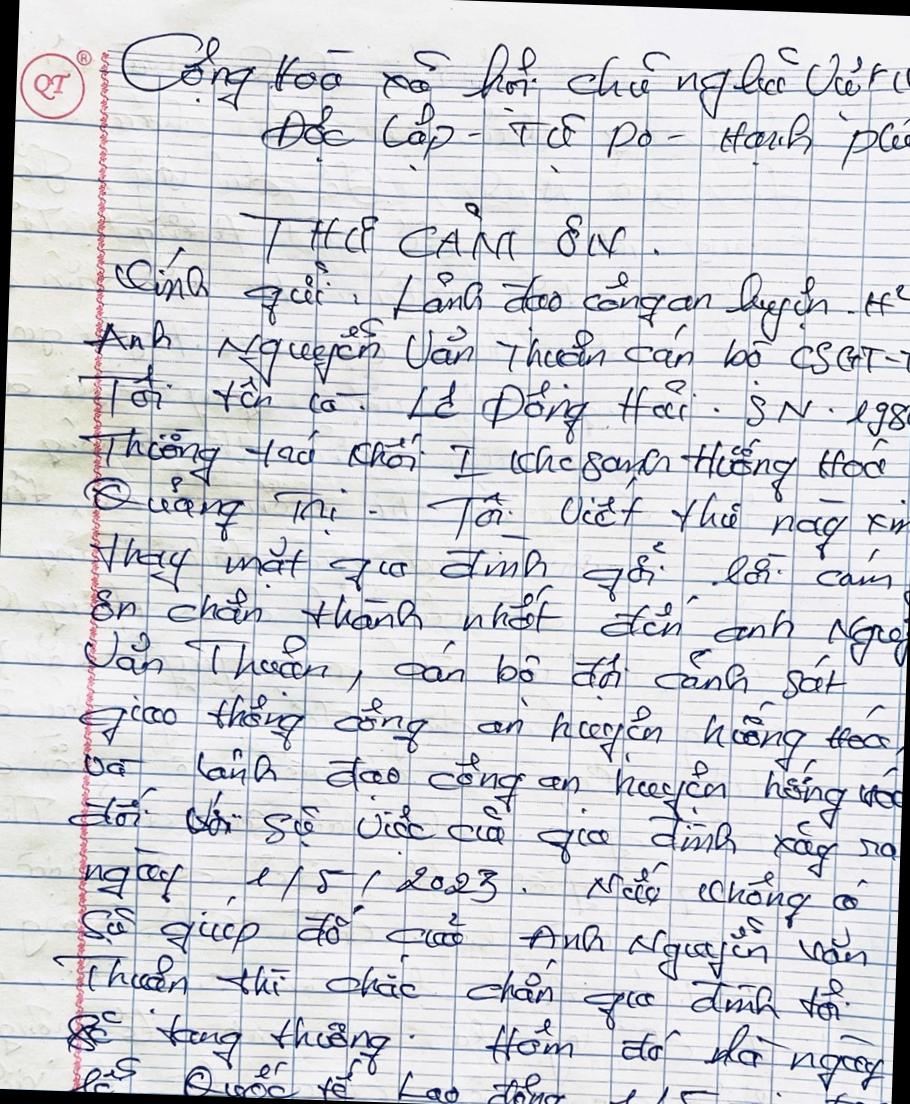 QT ®
Cộng hoà xã hội chủ nghĩa Việt
Độc Lập - Tự Do - Hạnh phú
THƯ CẢM ƠN.
Kính gửi. Lãnh đạo công an huyện. H
Anh Nguyễn Văn Thuần cán bộ CSGT-T
Tôi tên là. Lê Đông Hải. SN. 198
Thường trú khối I Khe sanh Hướng Hoá
Quảng Trị. Tôi viết thư này xin
thay mặt gia đình gởi lời cám
ơn chân thành nhất đến anh Nguy
Văn Thuần, cán bộ đội cảnh sát
giao thông công an huyện hướng Hoá,
và lãnh đạo công an huyện hướng Hoá
đối với sự việc của gia đình xảy ra
ngày 1/5/2023. Nếu không có
sự giúp đỡ của Anh Nguyễn Văn
Thuần thì chắc chắn gia đình tôi
sẽ tang thương. Hôm đó là ngày
lễ Quốc tế Lao động 1/5